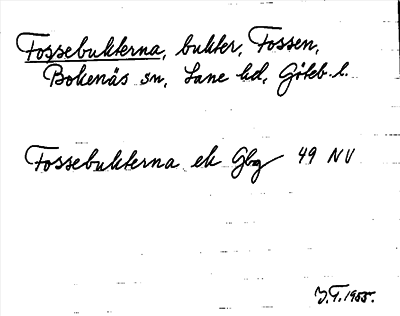 Fossebukterna, bukter, Fossen,
Bokenäs sn, Lane hd, Göteb. l.
Fossebukterna ek Gbg 49 NV
J.T. 1955.